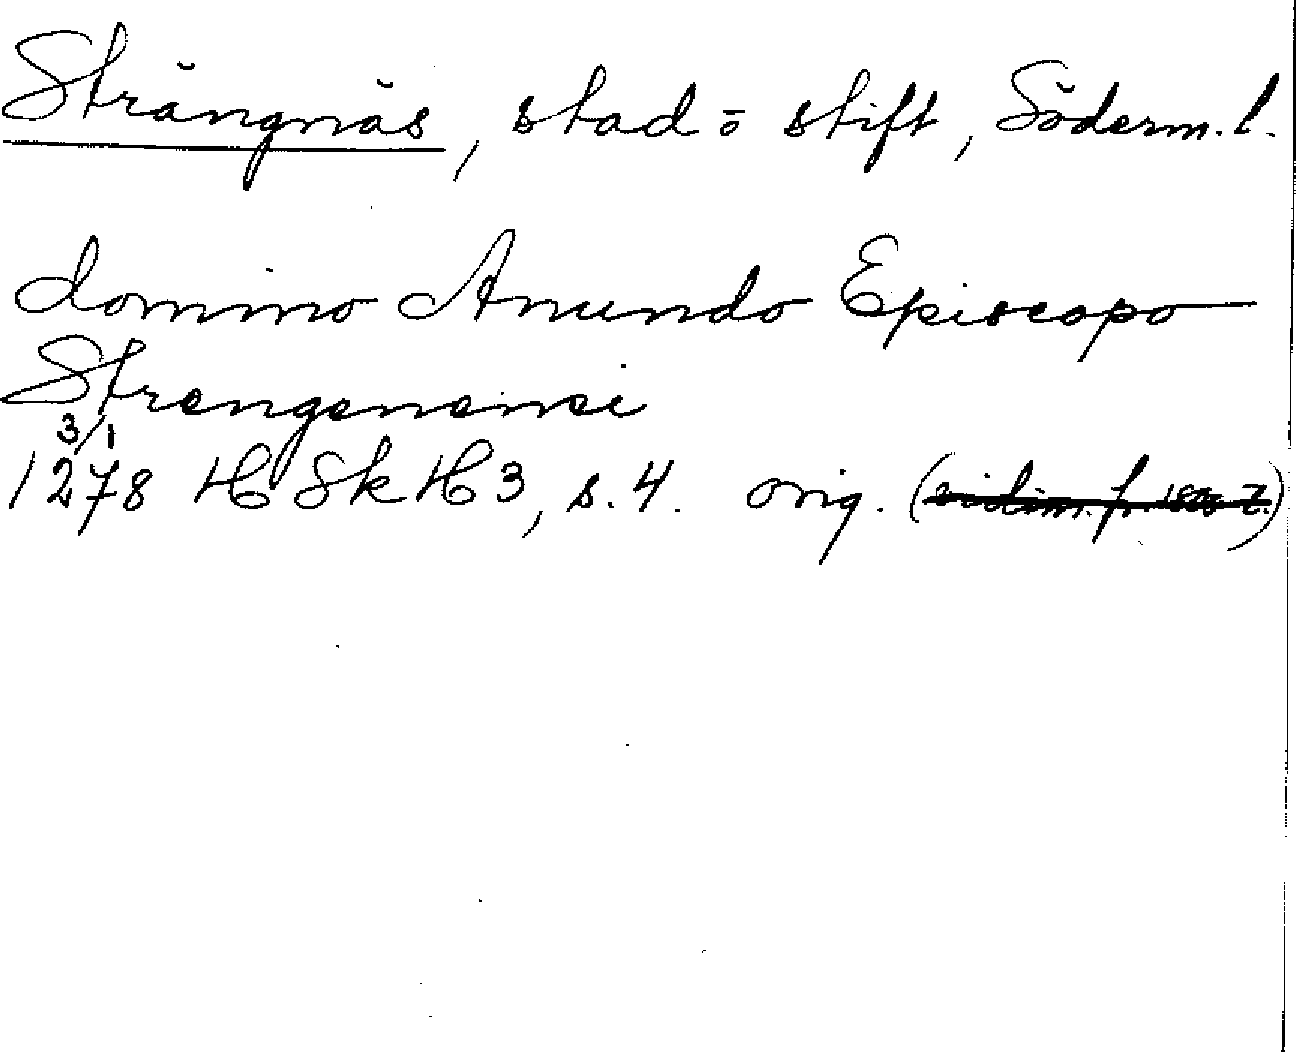 Strängnäs, stad o stift, Söderm. l.
domino Anundo Episcopo
Strengenensi
3/1
1278 HSkH3, s. 4. orig. (vidim. fr.)